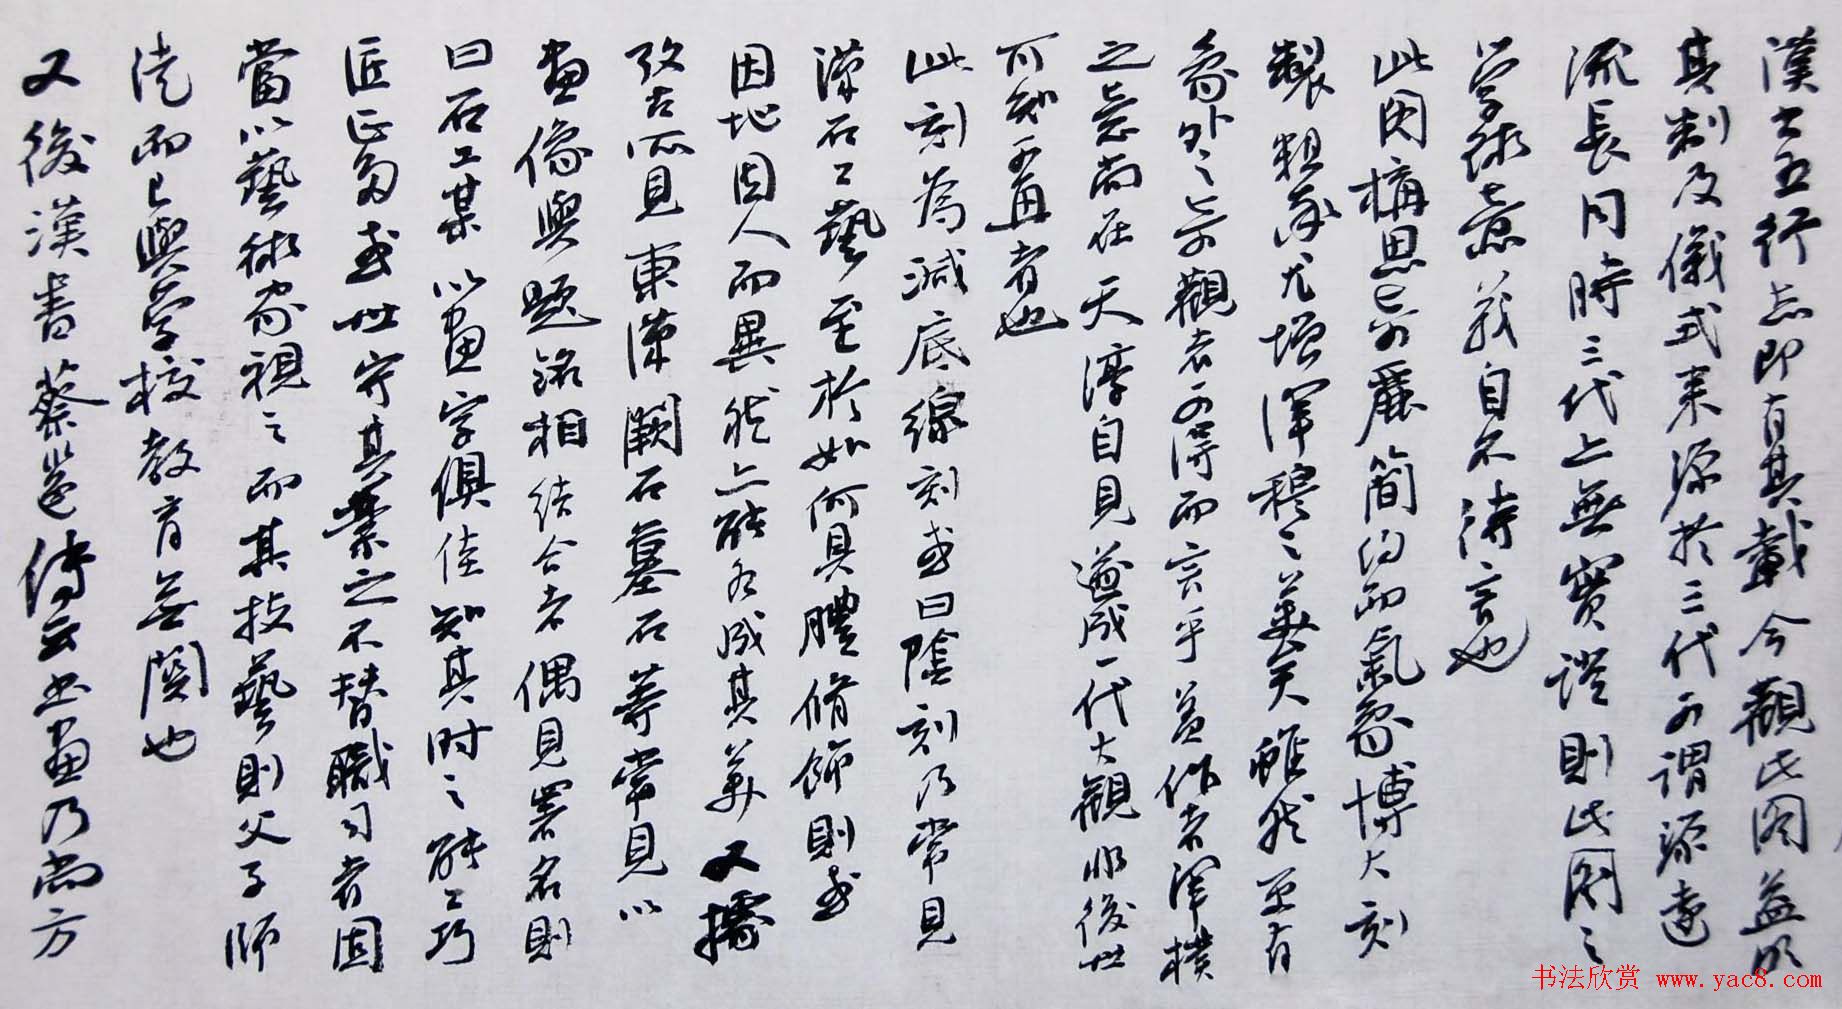 漢書五行志即有其載今觀此圖益明
其制及儀式来源於三代可謂源遠
流長同時三代上無實證則此圖之
學術意義自不待言也
此圖構思奇麗簡约而氣象博大刻
製粗遂尤增渾穆之美矣雖然至有
象外之意觀者可得而言乎蓋作者渾樸
之意尚在天淳自見遂成一代大觀非後世
可知可再者也
此刻為減底線刻或曰陰刻乃常見
漢石工藝至於如何具體脩飾則或
因地因人而異然亦能各成其美又據
攷古所見東漢闕石墓石等常見以
畫像與題銘相结合者偶見署名則
曰石工某以畫字俱佳知其时之能工巧
匠正多或世守其業之不替職司者固
當以藝術家視之而其技藝則父子師
徒而已與學校教育無關也
又後漢書蔡邕傳云書畫乃尚方
书法欣赏 www.yac8.com